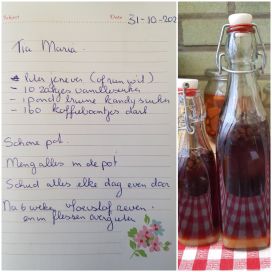 School
Date 31-10-202
Tia Maria.
- liter jenever (of run wil)
- 10 zakjes vanillesuiker
- 1 pond bruine kandij suiker
- 160 koffieboontjes dark
Schone pot.
Meng alles in de pot
Schud alles elke dag even door
Na 6 weken zeven.
en in flessen overgieten